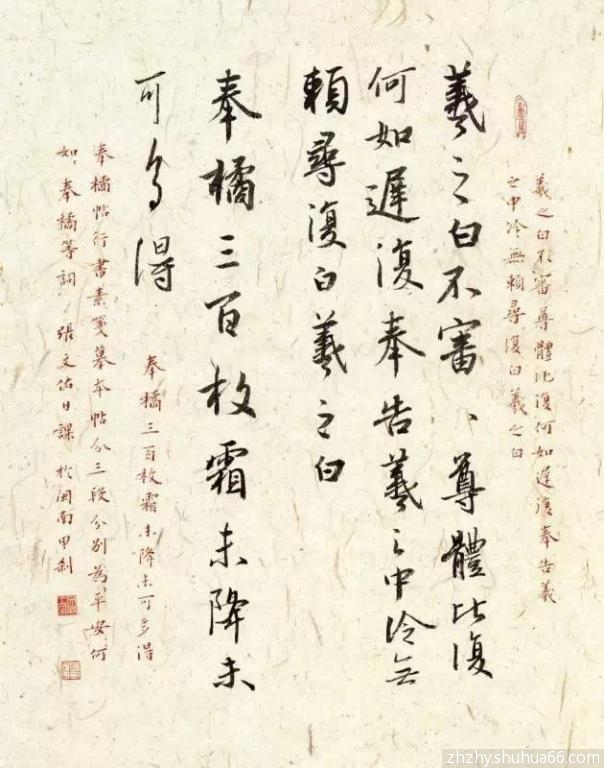 羲之白不審尊體比復何如遲復奉告羲
之中冷無賴尋復白羲之白
羲之白不審、尊體比復
何如遲復奉告羲之中冷无
賴尋復白羲之白
奉橘三百枚霜未降未
可多得
奉橘三百枚霜未降未可多得
奉橘帖行書素箋摹本帖分三段分別為平安何
如、奉橘等詞 張文佑日課於閩南甲
zhzhy.shuhua66.com